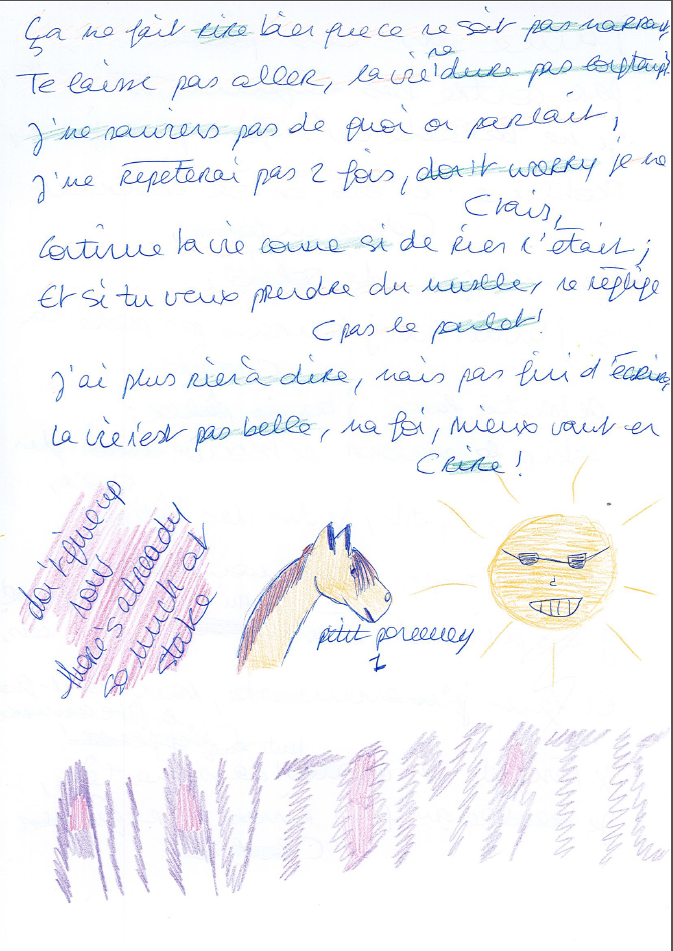 Ça ne fait rire bien que ce ne soit pas marrant,
Te laisse pas aller, la vie ne dure pas longtemps.
J'ne saurers pas de quoi on parlait,
J'ne répèterai pas 2 fois, don't worry je ne
Crais,
Continue la vie comme si de rien n'était;
Et si tu veux prendre du muscle, ne néglige
Cpas le boulot!
J'ai plus rien à dire, mais pas fini d'écrire,
la vie n'est pas belle, ma foi, mieux vaut en
Crire!
don't give up
now
there's already
so much at
stake
petit poneeey
1
AII AUTOMATIC